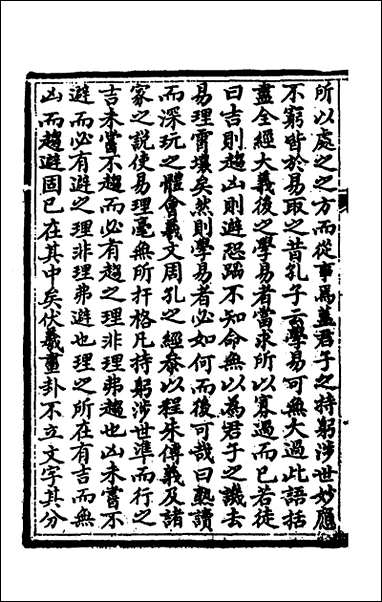 所以處之之方而從事焉蓋君子之持躬涉世妙應
不窮皆於易取之昔孔子云學易可無大過此語括
盡全經大義後之學易者當求所以寡過而已若徒
曰吉則趨凶則避恐蹈不知命無以為君子之譏去
易理霄壤矣然則學易者必如何而後可哉曰熟讀
而深玩之體會羲文周孔之經叅以程朱傳義及諸
家之説使易理毫無所扞格凡持躬涉世準而行之
吉未嘗不趨而必有趨之理非理弗趨也凶未嘗不
避而必有避之理非理弗避也理之所在有吉而無
凶而趨避固已在其中矣伏羲畫卦不立文字其分